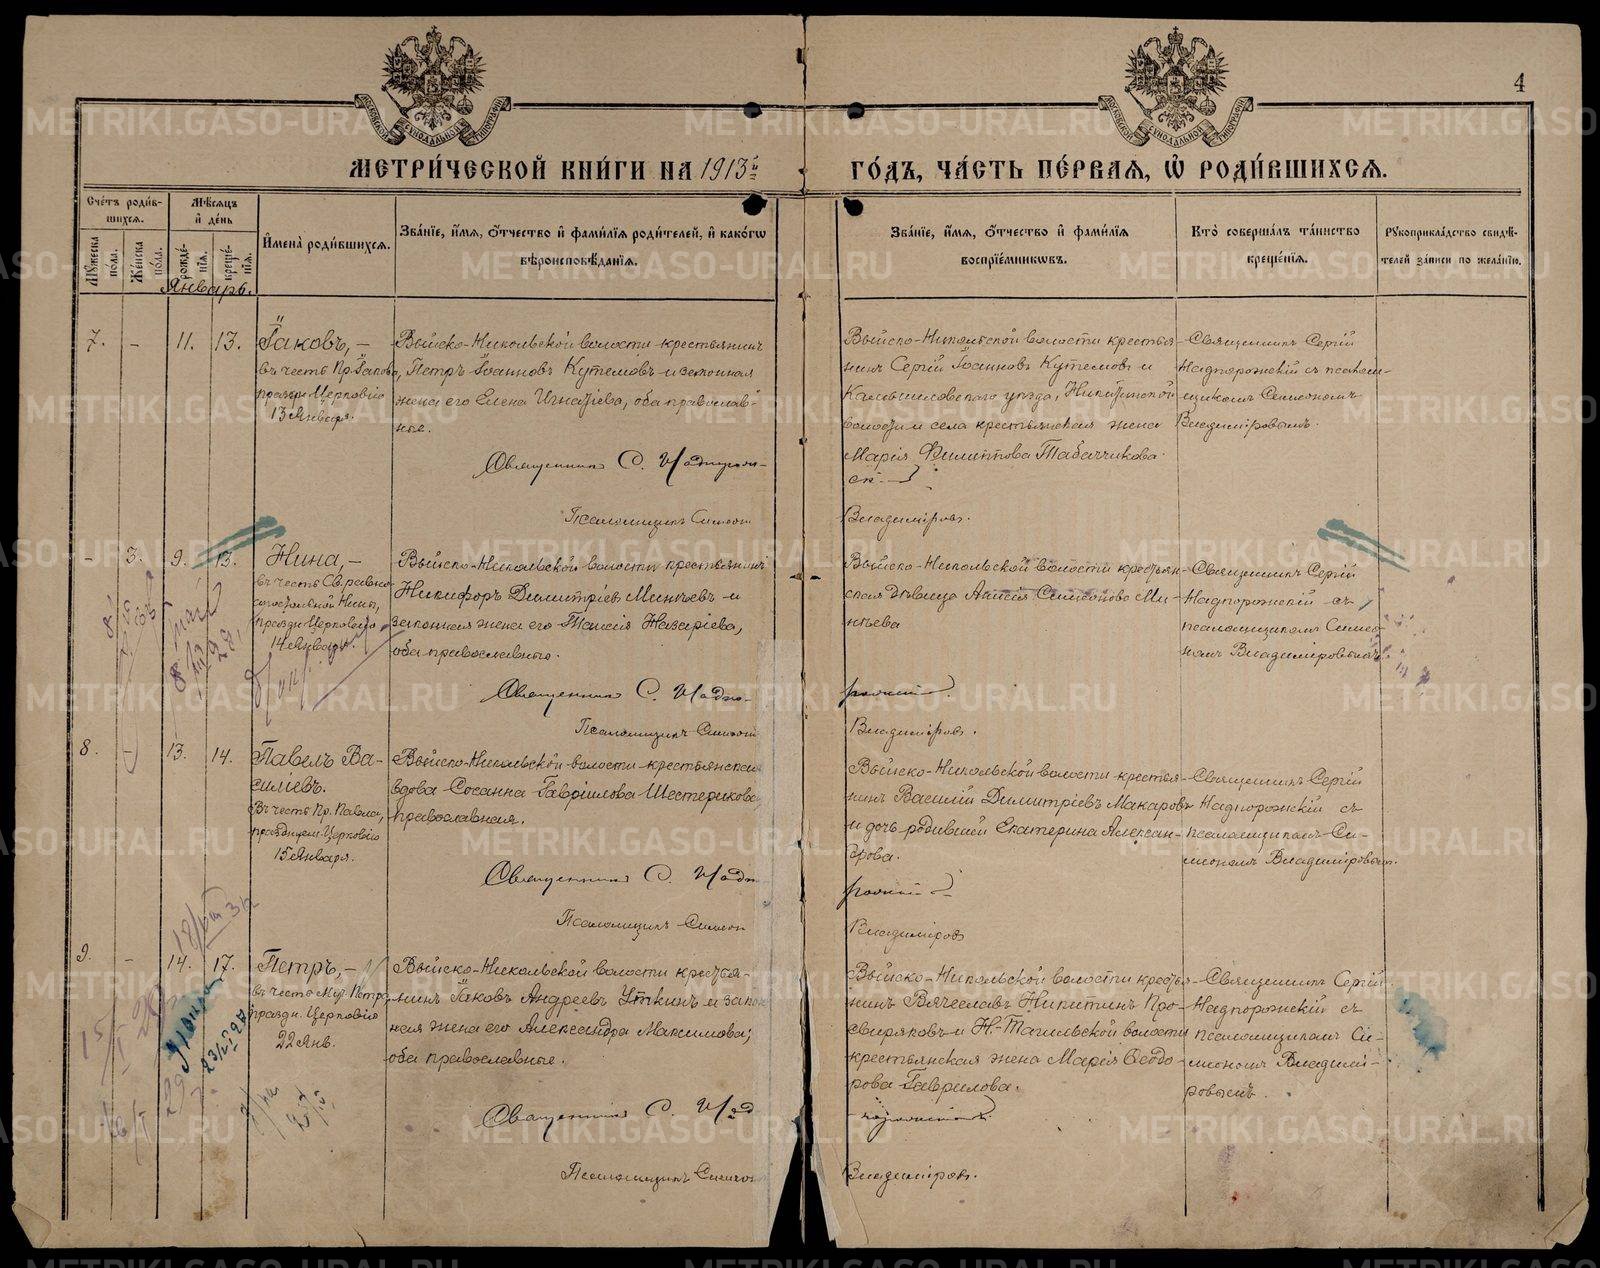 4
МЕТРИ́ЧЕСКОЙ КНИ́ГИ НА 1913й
ГО́ДЪ, ЧА́СТЬ ПЕ́РВАѦ, Ѿ РОДИ́ВШИХСѦ.
Сче́тъ роди́в-
шихсѧ.
Мѣ́сѧцъ
и де́нь
Мꙋ́жеска
по́ла.
Же́нска
по́ла.
рожде́-
нїѧ.
креще́-
нїѧ.
И҆мена̀ роди́вшихсѧ.
Зва́нїе, и҆́мѧ, ѻ҆́тчество и҆ фами́лїѧ роди́телей, и҆ како́гѡ
вѣроисповѣ́данїѧ.
Зва́нїе, и҆́мѧ, ѻ҆́тчество и҆ фами́лїѧ
воспрїе́мникѡвъ.
Кто̀ соверша́лъ та́инство
креще́нїѧ.
Рꙋкоприкла́дство свидѣ́-
телей за́писи по жела́нїю.
Январь.
7. - 11. 13.
Іаковъ, -
въ честь Пр. Іакова,
праздн. Церковію
13 Января.
Выйско-Никольской волости крестьянинъ
Петръ Іоанновъ Кутемовъ и законная
жена его Елена Игнатіева, оба православ-
ные.
Священникъ С. Надпорож-
Псаломщикъ Симеон
Выйско-Никольской волости крестья-
нинъ Сергій Іоанновъ Кутемовъ и
Камышловскаго уѣзда, Никитинской
волости и села крестьянская жена
Марія Филиппова Табатчикова.
ск-
Владиміровъ.
Священникъ Сергій
Надпорожскій съ псалом-
щикомъ Симеономъ
Владиміровымъ.
- 3. 9. 13.
Нина, -
въ честь Св. равно-
апостольной Нины,
праздн. Церковію
14 Января.
Выйско-Никольской волости крестьянинъ
Никифоръ Димитріевъ Миньевъ и
законная жена его Таисія Назаріева,
оба православные.
Священникъ С. Надпо-
Псаломщикъ Симеон
Выйско-Никольской волости крестьян-
ская дѣвица Анисія Симеонова Ми-
ньева
рожскій
Владиміровъ.
Священникъ Сергій
Надпорожскій съ
псаломщикомъ Симео-
номъ Владиміровымъ
8. - 13. 14.
Павелъ Ва-
силіевъ.
Въ честь Пр. Павла,
празднуем. Церковію
15 Января.
Выйско-Никольской волости крестьянская
вдова Сосанна Гавріилова Шестерикова,
православная.
Священникъ С. Надп
Псаломщикъ Симеон
Выйско-Никольской волости крестья-
нинъ Василій Димитріевъ Макаровъ
и дочь родившей Екатерина Алексан-
дрова.
рожскій
Владиміровъ
Священникъ Сергій
Надпорожскій съ
псаломщикомъ Си-
меономъ Владиміровым.
9. - 14. 17.
Петръ, -
въ честь Муч. Петра,
праздн. Церковію
22 Янв.
Выйско-Никольской волости крестья-
нинъ Іаковъ Андреевъ Уткинъ и закон-
ная жена его Александра Максимова;
оба православные.
Священникъ С. Над
Псаломщикъ Симеон
Выйско-Никольской волости крестья-
нинъ Вячеславъ Никитинъ Про-
свиряковъ и Н.-Тагильской волости
крестьянская жена Марія Ѳеодо-
рова Гаврилова.
порожскій
Владиміровъ.
Священникъ Сергій
Надпорожскій съ
псаломщикомъ Си-
меономъ Владимі-
ровымъ.
METRIKI.GASO-URAL.RU